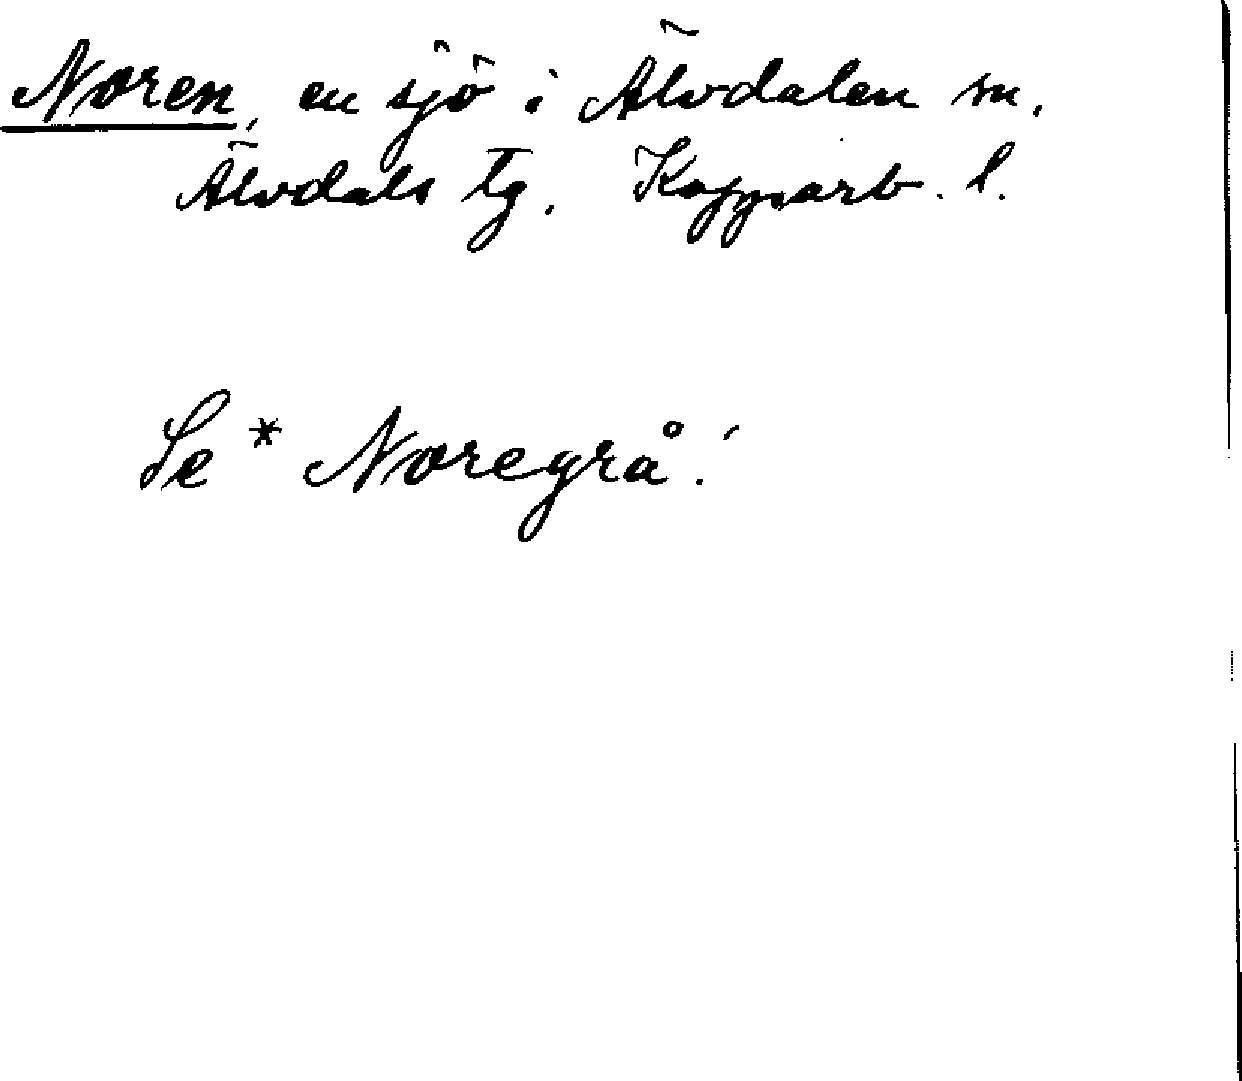 Noren, en sjö i Älvdalen sn.
Älvdals tg. Kopparb. l.
Se * Noregrå!